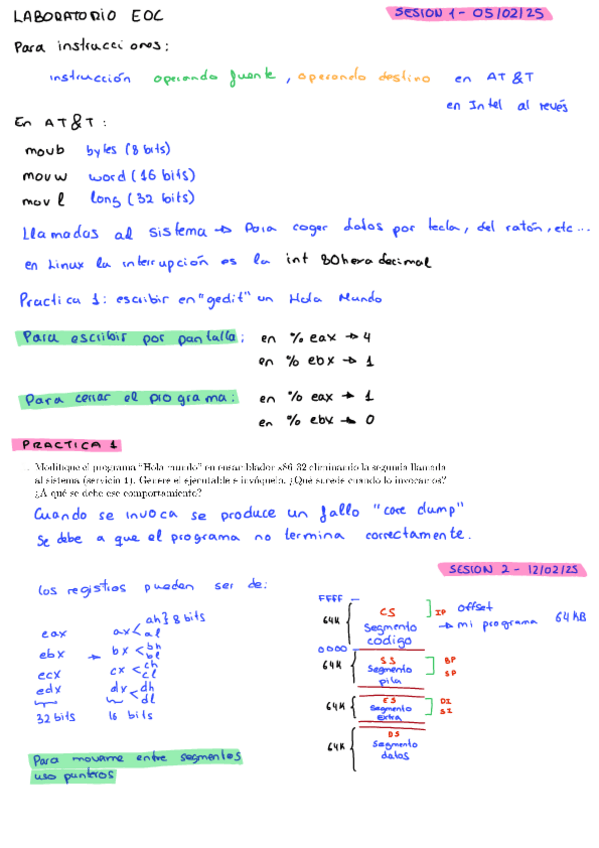 LABORATORIO EOC
SESION 1 - 05/02/25
Para instrucciones:
instrucción operando fuente, operando destino en AT&T
en Intel al revés
En AT&T:
movb bytes (8 bits)
movw word (16 bits)
movl long (32 bits)
Llamadas al sistema → Para coger datos por tecla, del ratón, etc...
en Linux la interrupción es la int 80hexadecimal
Practica 1: escribir en "gedit" un Hola Mundo
Para escribir por pantalla: en %eax → 4
en %ebx → 1
Para cerrar el programa: en %eax → 1
en %ebx → 0
PRACTICA 1
Modifique el programa "Hola mundo" en ensamblador x86-32 eliminando la segunda llamada
al sistema (servicio 1). Genere el ejecutable e invóquelo. ¿Qué sucede cuando lo invocamos?
¿A qué se debe ese comportamiento?
Cuando se invoca se produce un fallo "core dump"
Se debe a que el programa no termina correctamente.
SESION 2 - 12/02/25
Los registros pueden ser de:
eax ax < ah al } 8 bits
ebx → bx < bh bl
ecx cx < ch cl
edx dx < dh dl
32 bits 16 bits
Para moverme entre segmentos
uso punteros
FFFF
64K CS ] IP offset
Segmento código → mi programa 64KB
0000
64K SS BP
Segmento pila SP
64K ES DI
Segmento extra SI
64K DS
Segmento datos